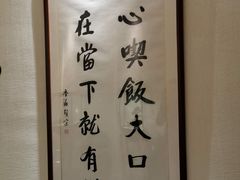 心喫飯大口
在當下就有